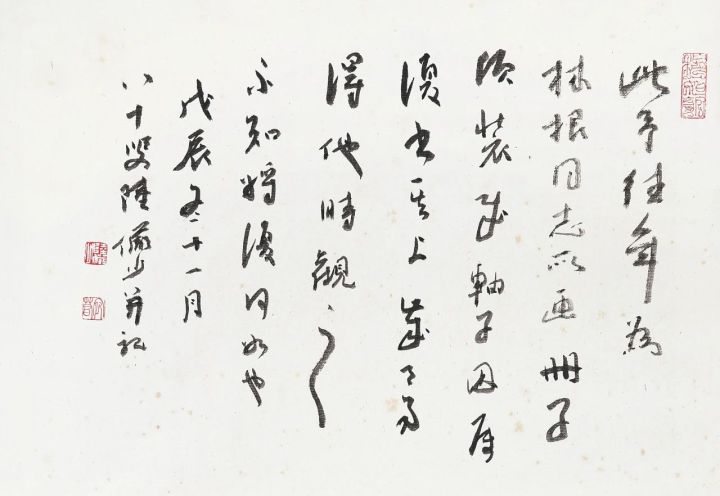 此予往年為
林根同志所画冊子
頃裝成軸子因属
復书其上歲月易
得他時觀之
不知將復何如也
戊辰冬十一月
八十叟陸儼少并記